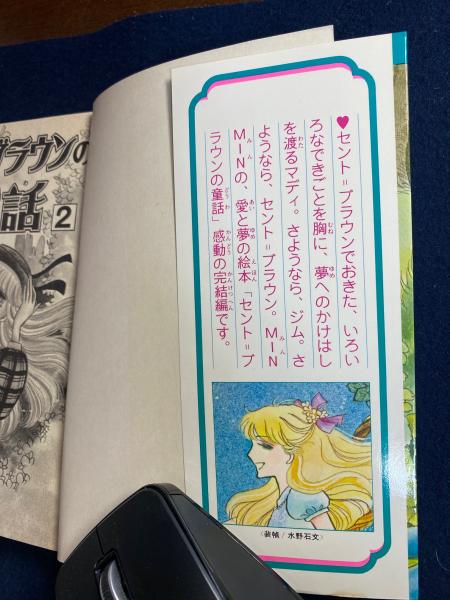 ♥セント＝ブラウンでおきた、いろい
ろなできごとを胸に、夢へのかけはし
を渡るマディ。さようなら、ジム。さ
ようなら、セント＝ブラウン。MIN
MINの、愛と夢の絵本「セント＝ブ
ラウンの童話」感動の完結編です。
〈装幀/水野石文〉
ブラウンの
話
2